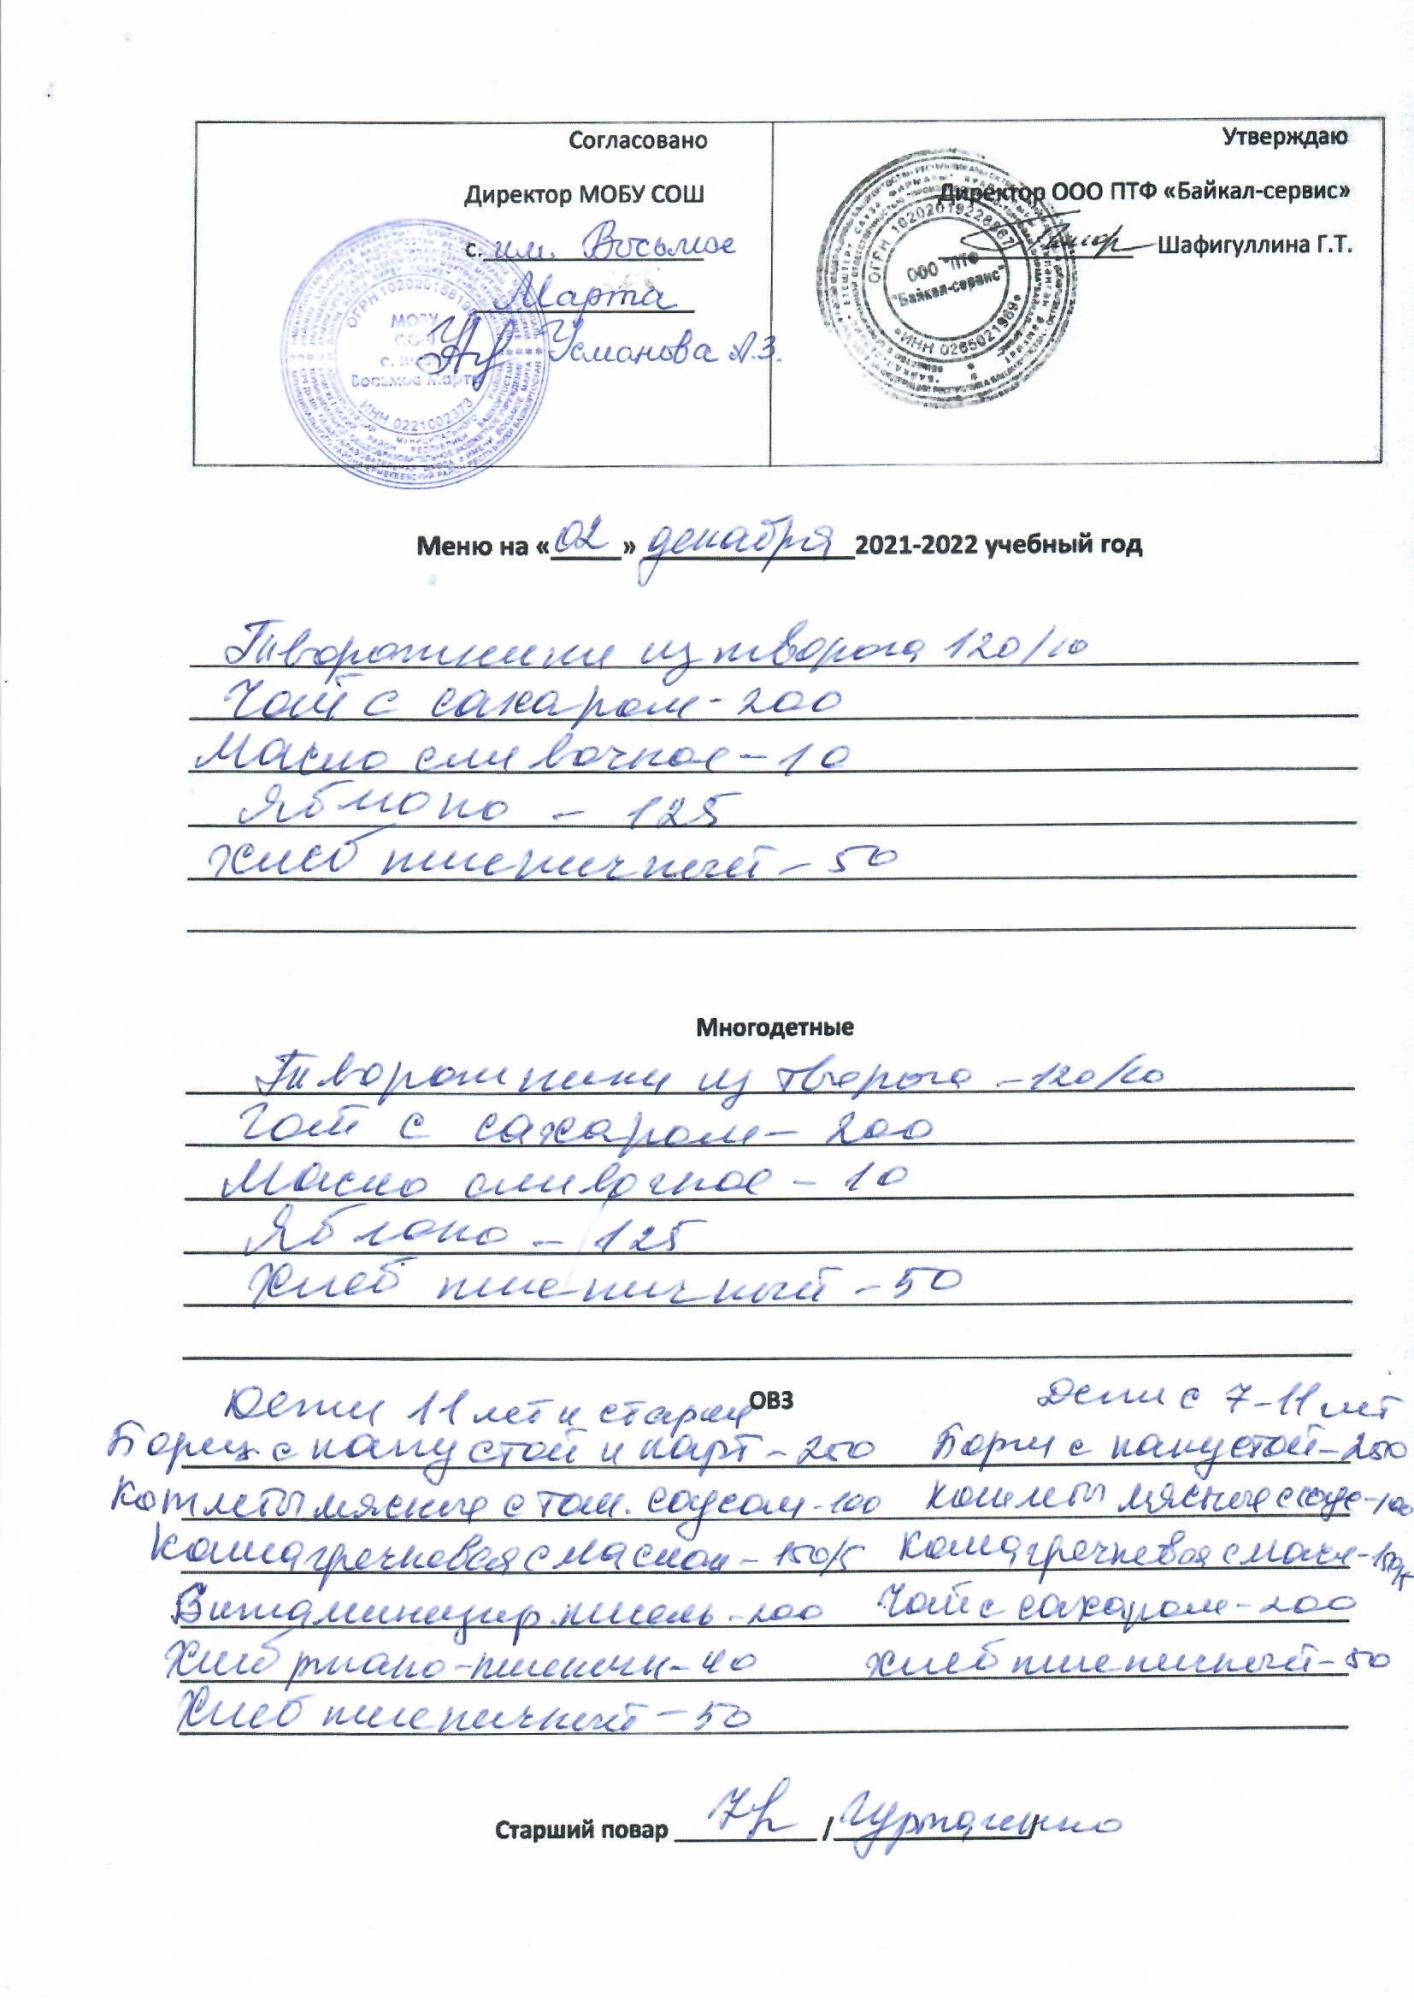 Согласовано
Директор МОБУ СОШ
с. им. Восьмое
Марта
Усманова А.З.
ОГРН
МОБУ
СОШ
с. им.
Восьмое Марта
ИНН 0221002373
Утверждаю
Директор ООО ПТФ «Байкал-сервис»
Шафигуллина Г.Т.
ОГРН 1020201922896
ООО "ПТФ
"Байкал-сервис"
ИНН 0265021969
Меню на «02» декабря 2021-2022 учебный год
Творожники из творога 120/10
Чай с сахаром - 200
Масло сливочное - 10
Яблоко - 125
Хлеб пшеничный - 50
Многодетные
Творожники из творога - 120/10
Чай с сахаром - 200
Масло сливочное - 10
Яблоко - 125
Хлеб пшеничный - 50
ОВЗ
Дети 11 лет и старш
Борщ с капустой и карт - 250
Котлеты мясные с том. соусом - 100
Каша гречневая с маслом - 150/5
Витаминизир. кисель - 200
Хлеб ржано-пшеничн - 40
Хлеб пшеничный - 50
Дети с 7-11 лет
Борщ с капустой - 250
Котлеты мясные с соус - 100
Каша гречневая с масл - 150/5
Чай с сахаром - 200
Хлеб пшеничный - 50
Старший повар /